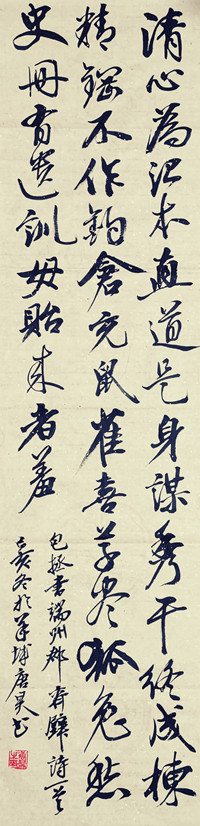 清心為治本直道是身謀秀干終成棟
精鋼不作鈎倉充鼠雀喜草尽狐兔愁
史冊有遺訓毋貽来者羞
包拯書端州郡齋壁詩一首
己亥冬於羊城唐昊书